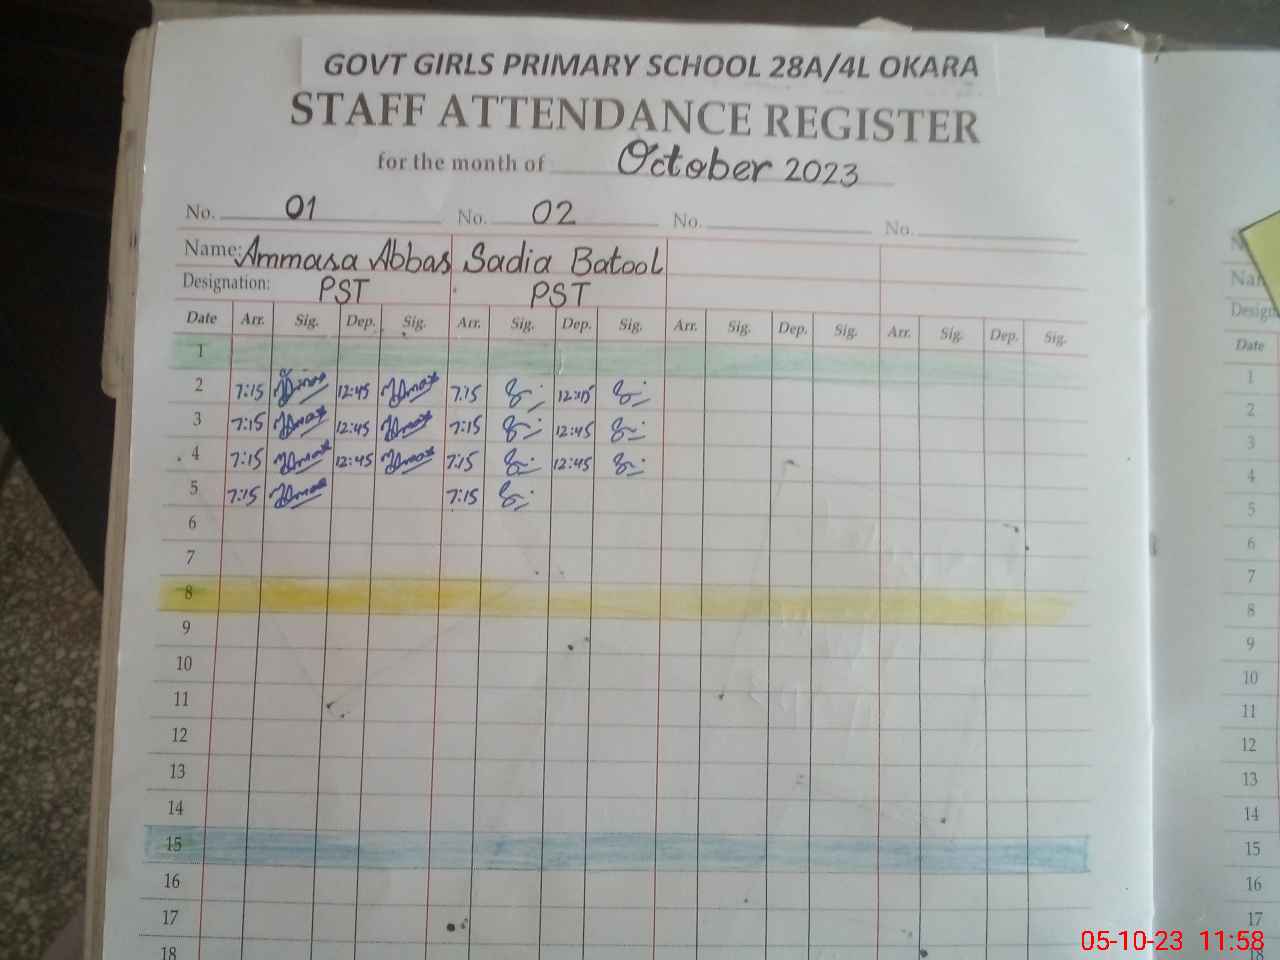 GOVT GIRLS PRIMARY SCHOOL 28A/4L OKARA
STAFF ATTENDANCE REGISTER
for the month of October 2023
No. 01 No. 02 No. No.
Name: Ammara Abbas Sadia Batool
Designation: PST PST
Date Arr. Sig. Dep. Sig. Arr. Sig. Dep. Sig. Arr. Sig. Dep. Sig. Arr. Sig. Dep. Sig.
1
2 7:15 12:45 7:15 12:45
3 7:15 12:45 7:15 12:45
4 7:15 12:45 7:15 12:45
5 7:15 7:15
6
7
8
9
10
11
12
13
14
15
16
17
18
Date
1
2
3
4
5
6
7
8
9
10
11
12
13
14
15
16
17
18
05-10-23 11:58